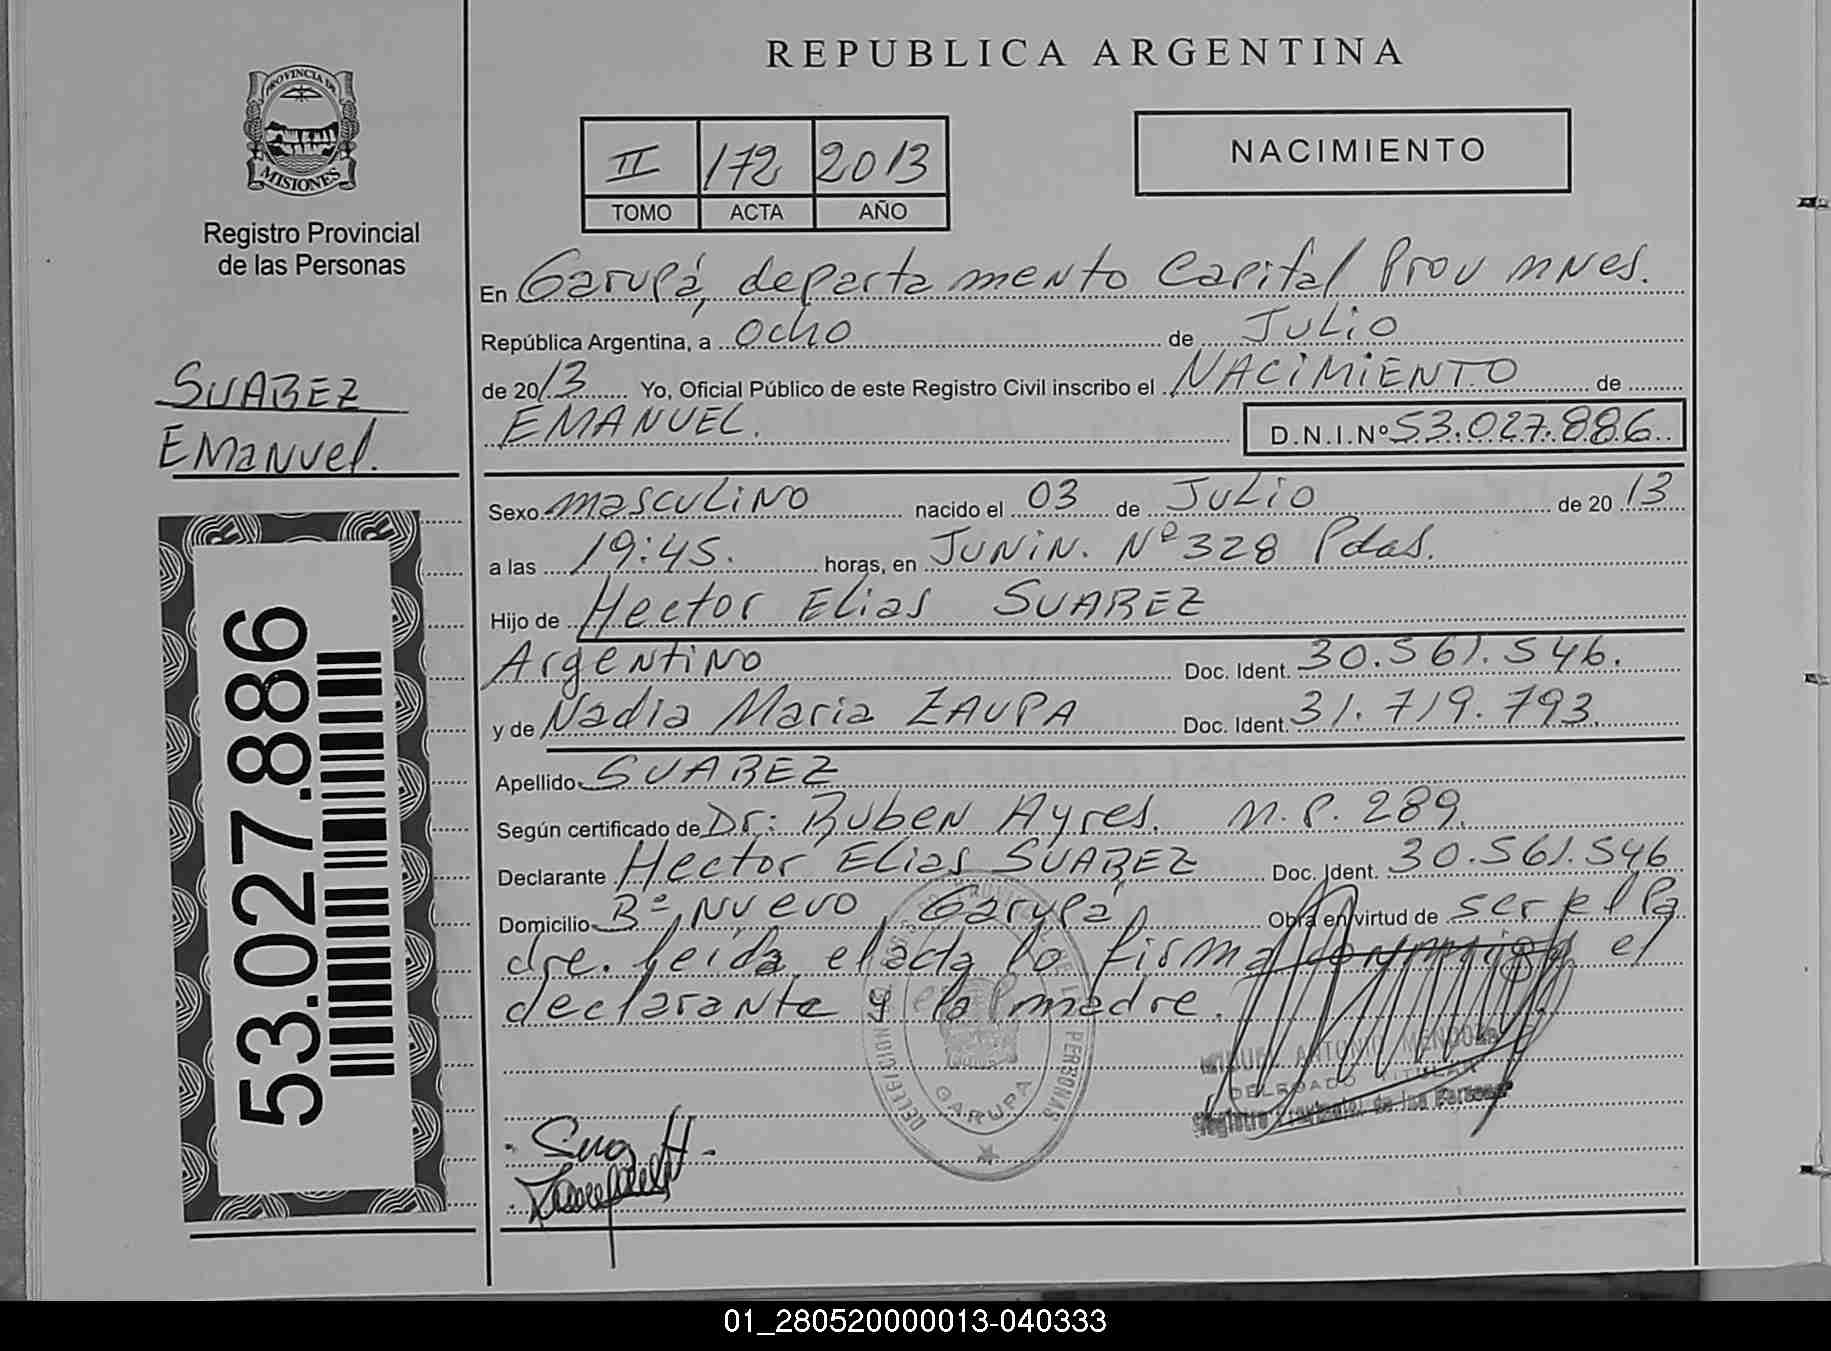 REPUBLICA ARGENTINA
PROVINCIA DE
MISIONES
Registro Provincial
de las Personas
II 172 2013
TOMO ACTA AÑO
NACIMIENTO
En Garupá, departamento Capital Prov mnes.
República Argentina, a ocho de Julio
de 2013 Yo, Oficial Público de este Registro Civil inscribo el NACIMIENTO de
EMANUEL.
D.N.I.Nº 53.027.886
SUAREZ
Emanuel.
53.027.886
Sexo masculino nacido el 03 de Julio de 2013
a las 19:45. horas, en Junin. Nº 328 Pdas.
Hijo de Hector Elias SUAREZ
Argentino Doc. Ident. 30.561.546.
y de Nadia Maria ZAUPA Doc. Ident. 31.719.793.
Apellido SUAREZ
Según certificado de Dr: Ruben Ayres. M.P. 289.
Declarante Hector Elias SUAREZ Doc. Ident. 30.561.546
Domicilio Bº Nuevo, Garupá, Obra en virtud de ser el Pa
dre. leída el acta la firma el
declarante y la madre.
GARUPA
PERSONAS
MIGUEL ANTONIO MENDOZA
DELEGADO TITULAR
Registro Provincial de las Personas
01_280520000013-040333